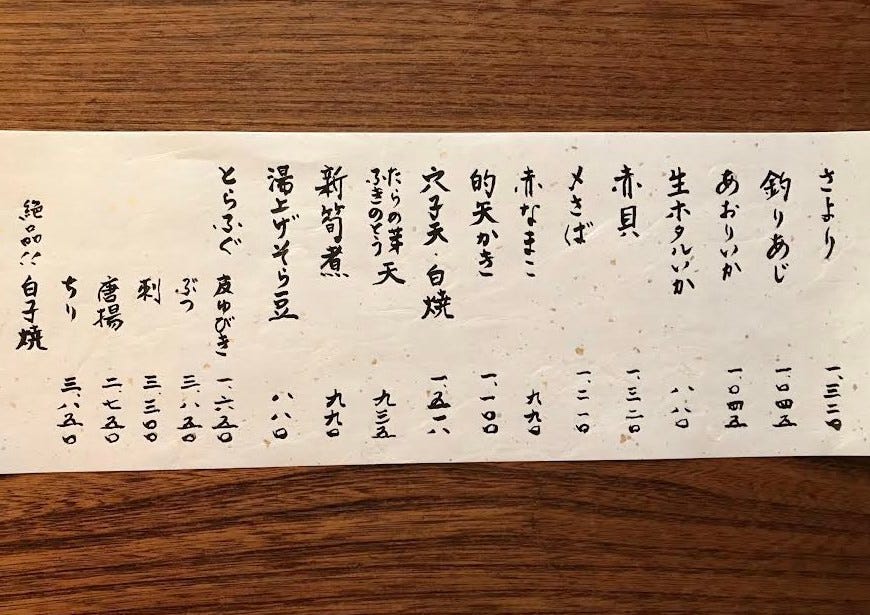 さより 一、三二〇
釣りあじ 一、〇四五
あおりいか 一、〇四五
生ホタルいか 八八〇
赤貝 一、三二〇
〆さば 一、二一〇
赤なまこ 九九〇
的矢かき 一、一〇〇
穴子天・白焼 一、五一八
たらの芽 ふきのとう 天 九三五
新筍煮 九九〇
湯上げそら豆 八八〇
とらふぐ 皮ゆびき 一、六五〇
ぶつ 三、八五〇
刺 三、三〇〇
唐揚 二、七五〇
ちり 三、八五〇
絶品!! 白子焼